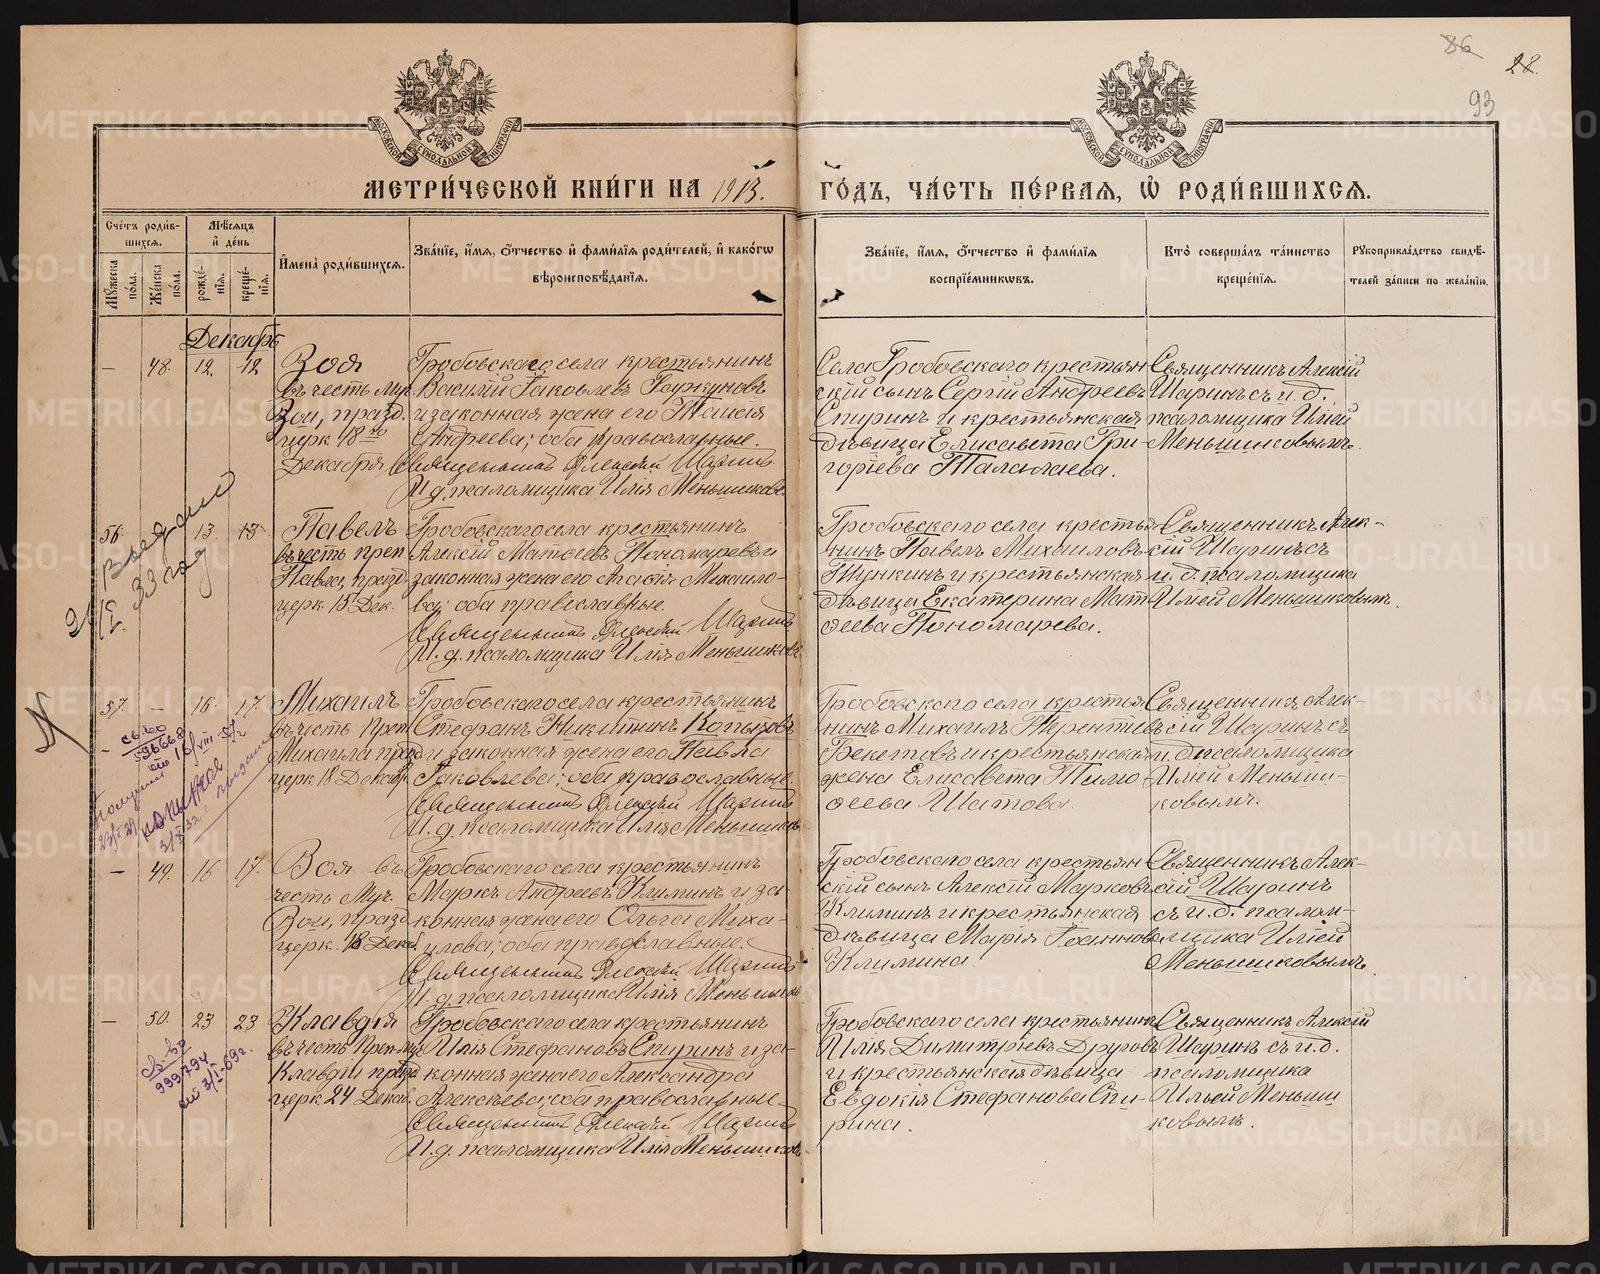 86
28.
93
МОСКОВСКОЙ СѴНОДАЛЬНОЙ ТИПОГРАФІИ
МОСКОВСКОЙ СѴНОДАЛЬНОЙ ТИПОГРАФІИ
МЕТРИ́ЧЕСКОЙ КНИ́ГИ НА 1913.
ГО́ДЪ, ЧА́СТЬ ПЕ́РВАЯ, Ѡ҆ РОДИ́ВШИХСЯ.
Сче́тъ роди́в-
шихся.
Мѣ́сяцъ
и҆ де́нь
Мꙋ́жеска по́ла.
Же́нска по́ла.
рожде́-
нїя.
креще́-
нїя.
И҆мена̀ роди́вшихся.
Зва́нїе, и҆́мя, ѻ҆́тчество и҆ фами́лїя роди́телей, и҆ како́гѡ
вѣроисповѣ́данїя.
Зва́нїе, и҆́мя, ѻ҆́тчество и҆ фами́лїя
воспрїе́мникѡвъ.
Кто̀ соверша́лъ та́инство
креще́нїя.
Рꙋкоприкла́дство свидѣ́-
телей за́писи по жела́нїю.
Декабрь
— 48. 12. 12
Зоя
въ честь муч.
Зои, празд.
церк. 18го
Декабря
Гробовскаго села крестьянинъ
Василій Іаковлевъ
и законная жена его Таисія
Андреева; оба православные.
Священникъ Алексій Шаринъ
И. д. псаломщика Илія Меньшиковъ
Села Гробовскаго крестьян-
скій сынъ Сергій Андреевъ
Спиринъ и крестьянская
дѣвица Елисавета Гри-
горіева Талалаева.
Священникъ Алексій
Шаринъ съ и. д.
псаломщика Иліей
Меньшиковымъ.
56. 13 13
Павелъ
въ честь преп.
Павла, празд.
церк. 15 Дек.
Гробовскаго села крестьянинъ
Алексій Матѳеевъ Пономаревъ и
законная жена его Агаѳія Михаило-
ва; оба православные.
Священникъ Алексій Шаринъ
И. д. псаломщика Илія Меньшиковъ
Гробовскаго села крестья-
нинъ Павелъ Михаиловъ
Тункинъ и крестьянская
дѣвица Екатерина Мат-
ѳеева Пономарева.
Священникъ Алек-
сій Шаринъ съ
и. д. псаломщика
Иліей Меньшиковымъ.
33 год
57. — 16. 17.
Михаилъ
въ честь Преп.
Михаила празд.
церк. 18 Декабр.
Гробовскаго села крестьянинъ
Стефанъ Никитинъ Копытовъ
и законная жена его Павла
Іаковлева; оба православные.
Священникъ Алексій Шаринъ
И. д. псаломщика Илія Меньшиковъ
Гробовскаго села крестья-
нинъ Михаилъ Терентьевъ
Бекетовъ и крестьянская
жена Елисавета Тимо-
ѳеева Шатова.
Священникъ Алек-
сій Шаринъ съ
и. д. псаломщика
Иліей Меньши-
ковымъ.
— 49. 16 17.
Зоя въ
честь Муч.
Зои, празд.
церк. 18 Декаб.
Гробовскаго села крестьянинъ
Маркъ Андреевъ Климинъ и за-
конная жена его Ольга Миха-
илова; оба православные.
Священникъ Алексій Шаринъ
И. д. псаломщика Илія Меньшиковъ
Гробовскаго села крестьян-
скій сынъ Алексій Марковъ
Климинъ и крестьянская
дѣвица Марія Іоаннова
Климина
Священникъ Алек-
сій Шаринъ
съ и. д. псалом-
щика Иліей
Меньшиковымъ.
— 50. 23 23
Клавдія
въ честь Преп. муч.
Клавдіи празд.
церк. 24 Декаб.
Гробовскаго села крестьянинъ
Илія Стефановъ Спиринъ и за-
конная жена его Александра
Алексѣева; оба православные.
Священникъ Алексій Шаринъ
И. д. псаломщика Илія Меньшиковъ
Гробовскаго села крестьянинъ
Илія Димитріевъ Друговъ
и крестьянская дѣвица
Евдокія Стефанова Спи-
рина.
Священникъ Алексій
Шаринъ съ и. д.
псаломщика
Ильей Меньши-
ковымъ.
METRIKI.GASO-URAL.RU